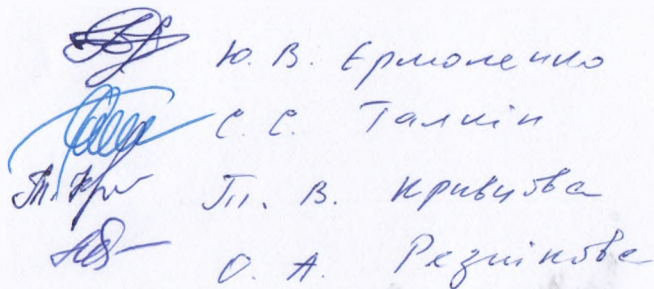 Ю. В. Єрмоленко
С. С. Талкін
Т. В. Кривцова
О. А. Резнікова